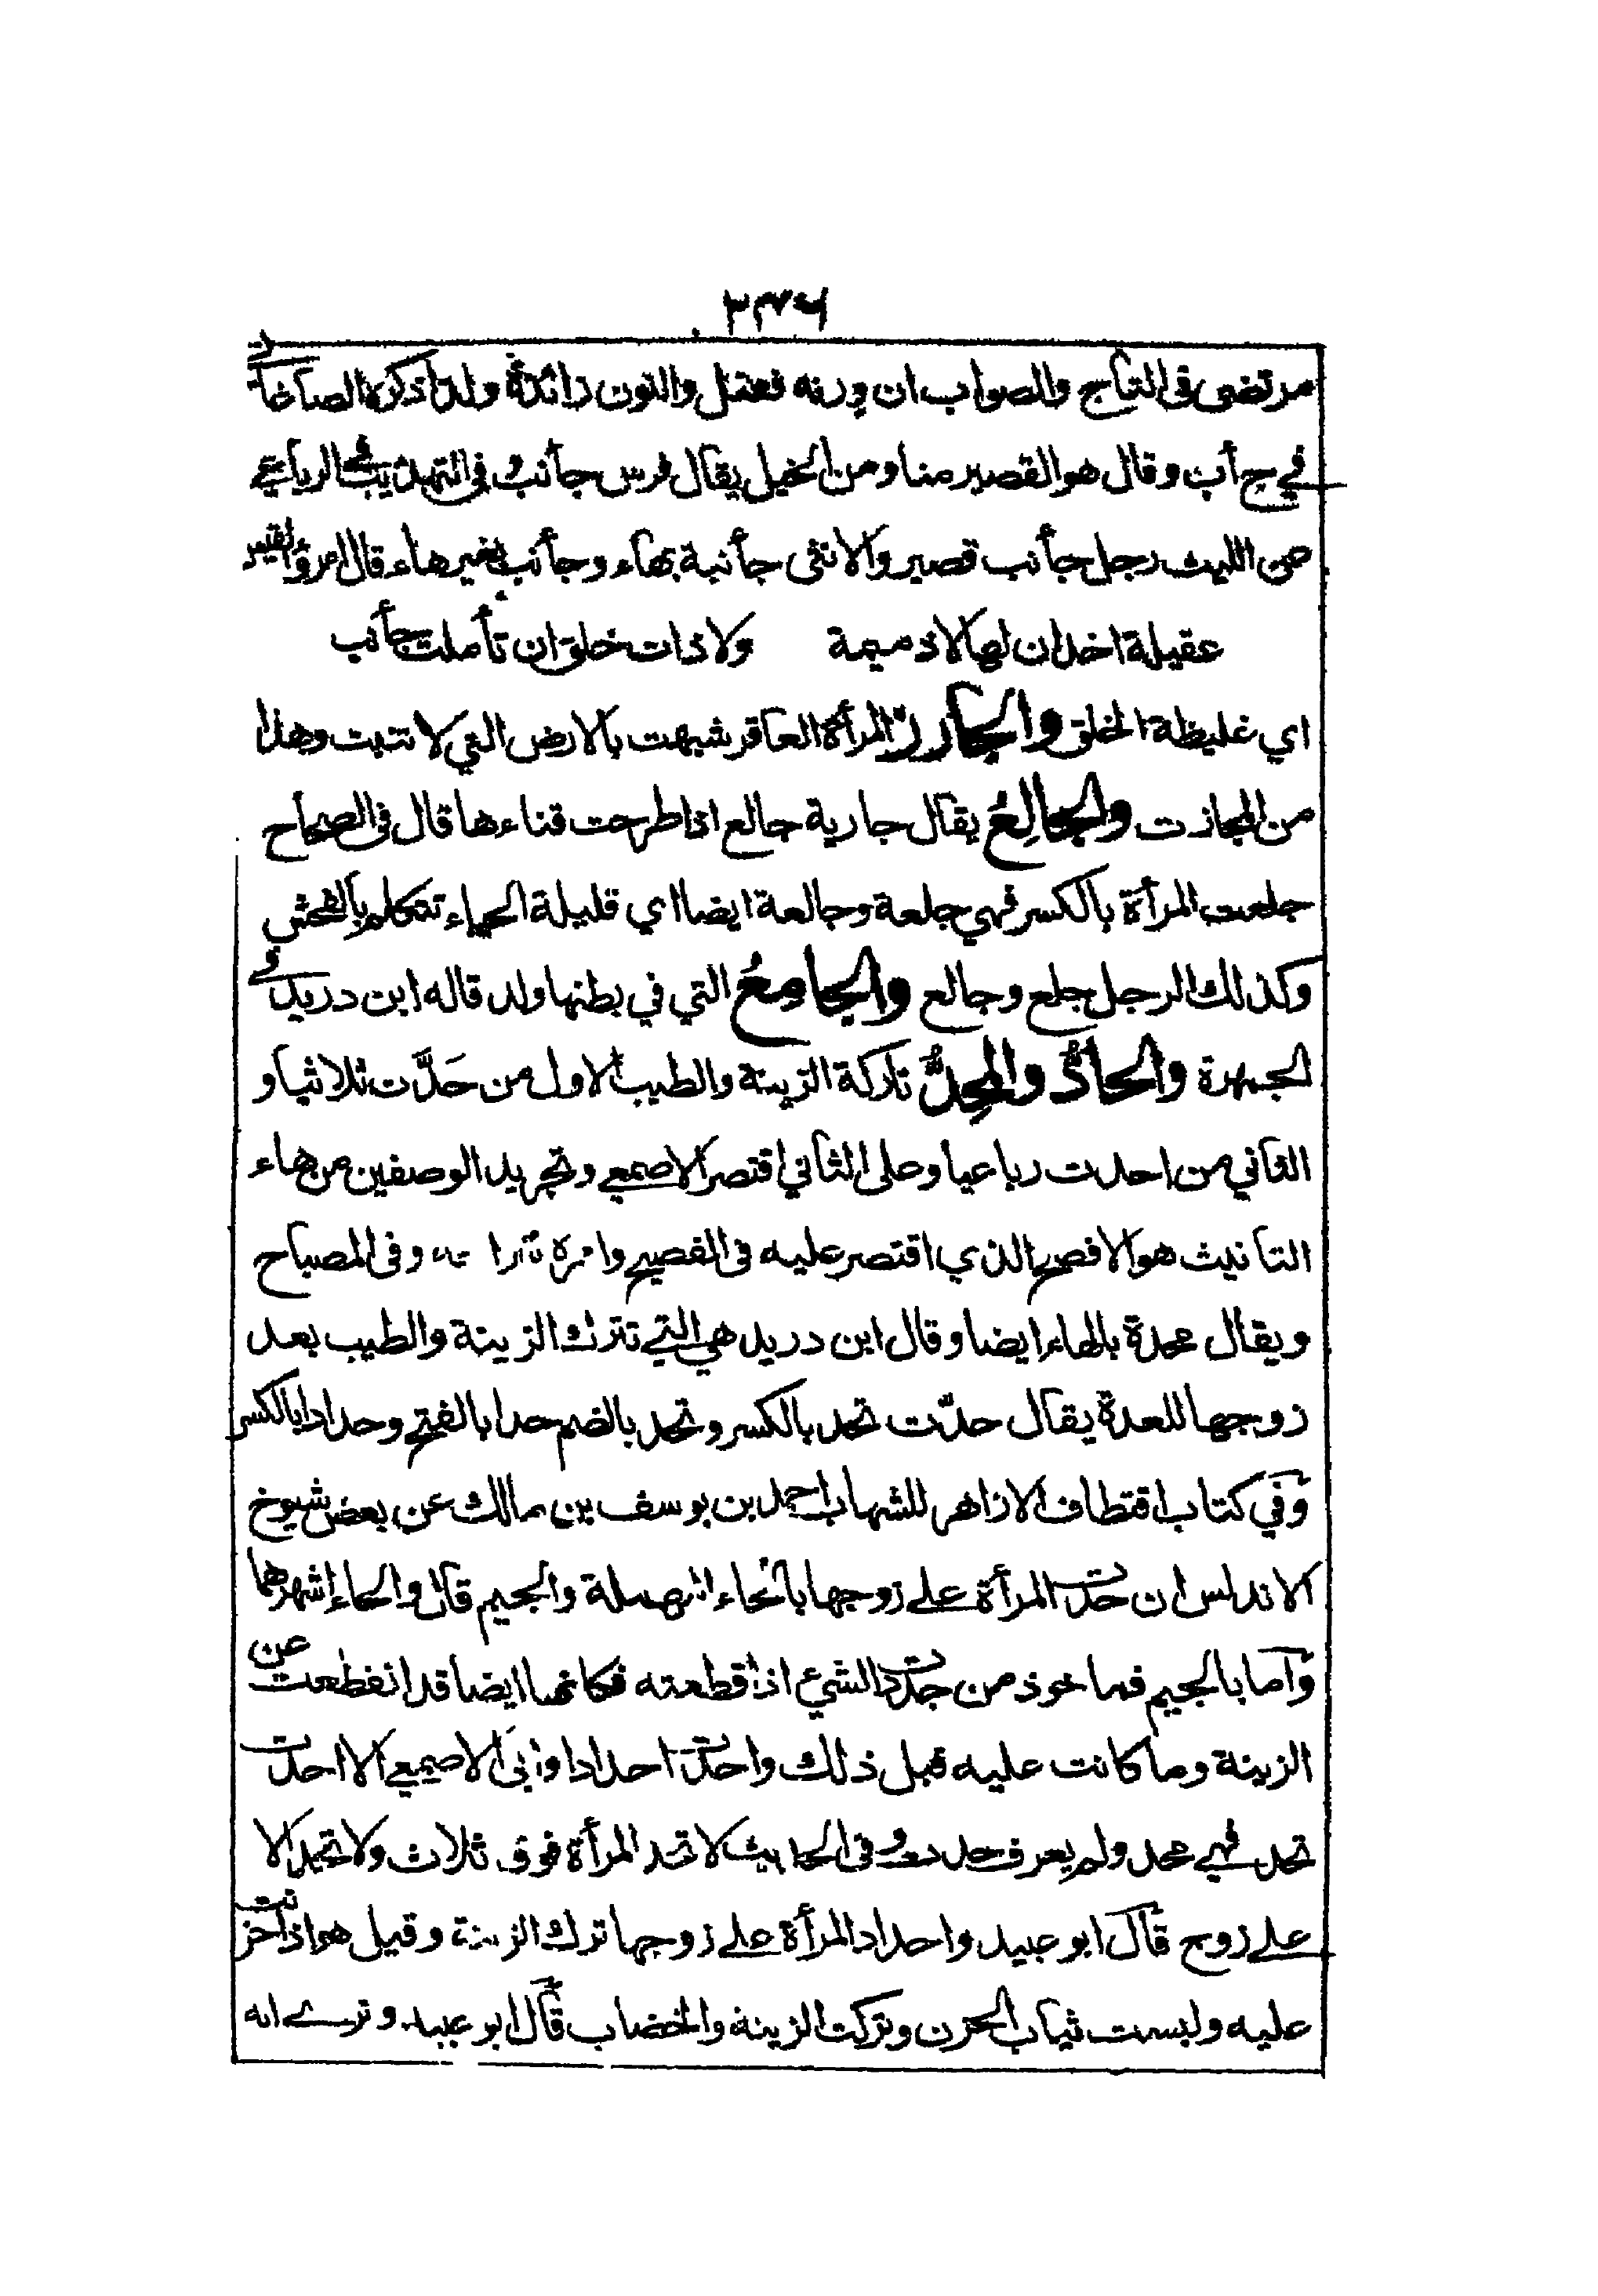 ٢٣٤٦
مرتضى في التاج والصواب ان وزنه فعنل والنون زائدة ولذا ذكره الصاغانى
في ج أب وقال هو القصير منا ومن الخيل يقال فرس جأنب و في التهذيب في الرباعي
عن الليث رجل جأنب قصير والانثى جأنبة بهاء وجأنب بغير هاء قال امرؤ القيس
عقيلة اخدان لها لا ذميمة ولا ذات خلق ان تأملت جأنب
اي غليظة الخلق والجارز المرأة العاقر شبهت بالارض التي لا تنبت وهذا
من المجازت والجالع يقال جارية جالع اذا طرحت قناءها قال في الصحاح
جلعت المرأة بالكسر فهي جلعة وجالعة ايضا اي قليلة الحياء تتكلم بالفحش
وكذلك الرجل جلع وجالع والجامع التي في بطنها ولد قاله ابن دريد في
الجمهرة والحادّ والمحدّ تاركة الزينة والطيب الاول من حَدَّت ثلاثيا و
الثاني من احدت رباعيا وعلى الثاني اقتصر الاصمعي وتجريد الوصفين من هاء
التانيث هو الافصح الذي اقتصر عليه في الفصيح وفي المصباح
ويقال محدة بالهاء ايضا وقال ابن دريد هي التي تترك الزينة والطيب بعد
زوجها للعدة يقال حدّت تحد بالكسر وتحد بالضم حدا بالفتح وحدادا بالكسر
وفي كتاب اقتطاف الازاهر للشهاب احمد بن يوسف بن مالك عن بعض شيوخ
الاندلس ان حدت المرأة على زوجها بالحاء المهملة والجيم قال والحاء اشهرهما
واما بالجيم فماخوذ من جددت الشئ اذا قطعته فكانها ايضا قد انقطعت عن
الزينة وما كانت عليه قبل ذلك واحدت احدادا وابى الاصمعي الا احدت
تحد فهي محد ولم يعرف حدت و في الحديث لا تحد المرأة فوق ثلاث ولا تحد الا
على زوج قال ابو عبيد واحداد المرأة على زوجها ترك الزينة وقيل هو اذا حزنت
عليه ولبست ثياب الحزن وتركت الزينة والخضاب قال ابو عبيد ونرى انه